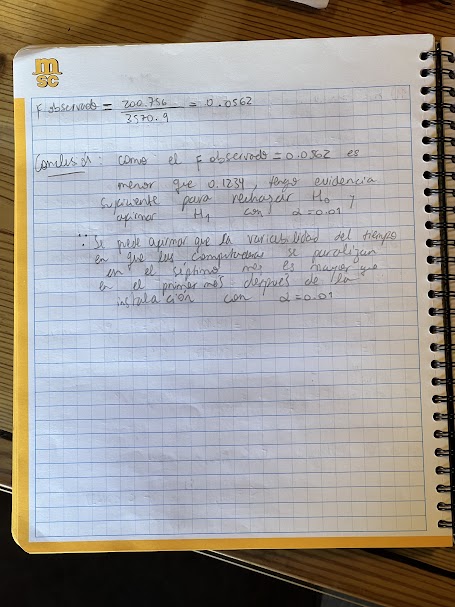 m
sc
F observado = 200.756 / 3570.9 = 0.0562
Conclusión: Como el F observado = 0.0562 es
menor que 0.1234, tengo evidencia
suficiente para rechazar H0 y
afirmar H1 con α=0.01
∵ Se puede afirmar que la variabilidad del tiempo
en que las computadoras se paralizan
en el séptimo mes es mayor que
en el primer mes después de la
instalación con α=0.01